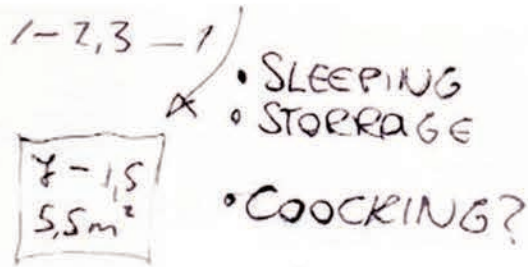 1-2,3-1
• SLEEPING
• STORRAGE
7-1,5
5,5m²
• COOCKING?